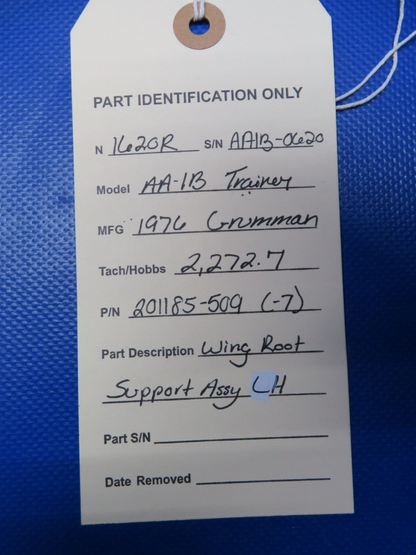 PART IDENTIFICATION ONLY
N 1620R S/N AA1B-0620
Model AA-1B Trainer
MFG 1976 Grumman
Tach/Hobbs 2,272.7
P/N 201185-509 (-7)
Part Description Wing Root
Support Assy LH
Part S/N
Date Removed